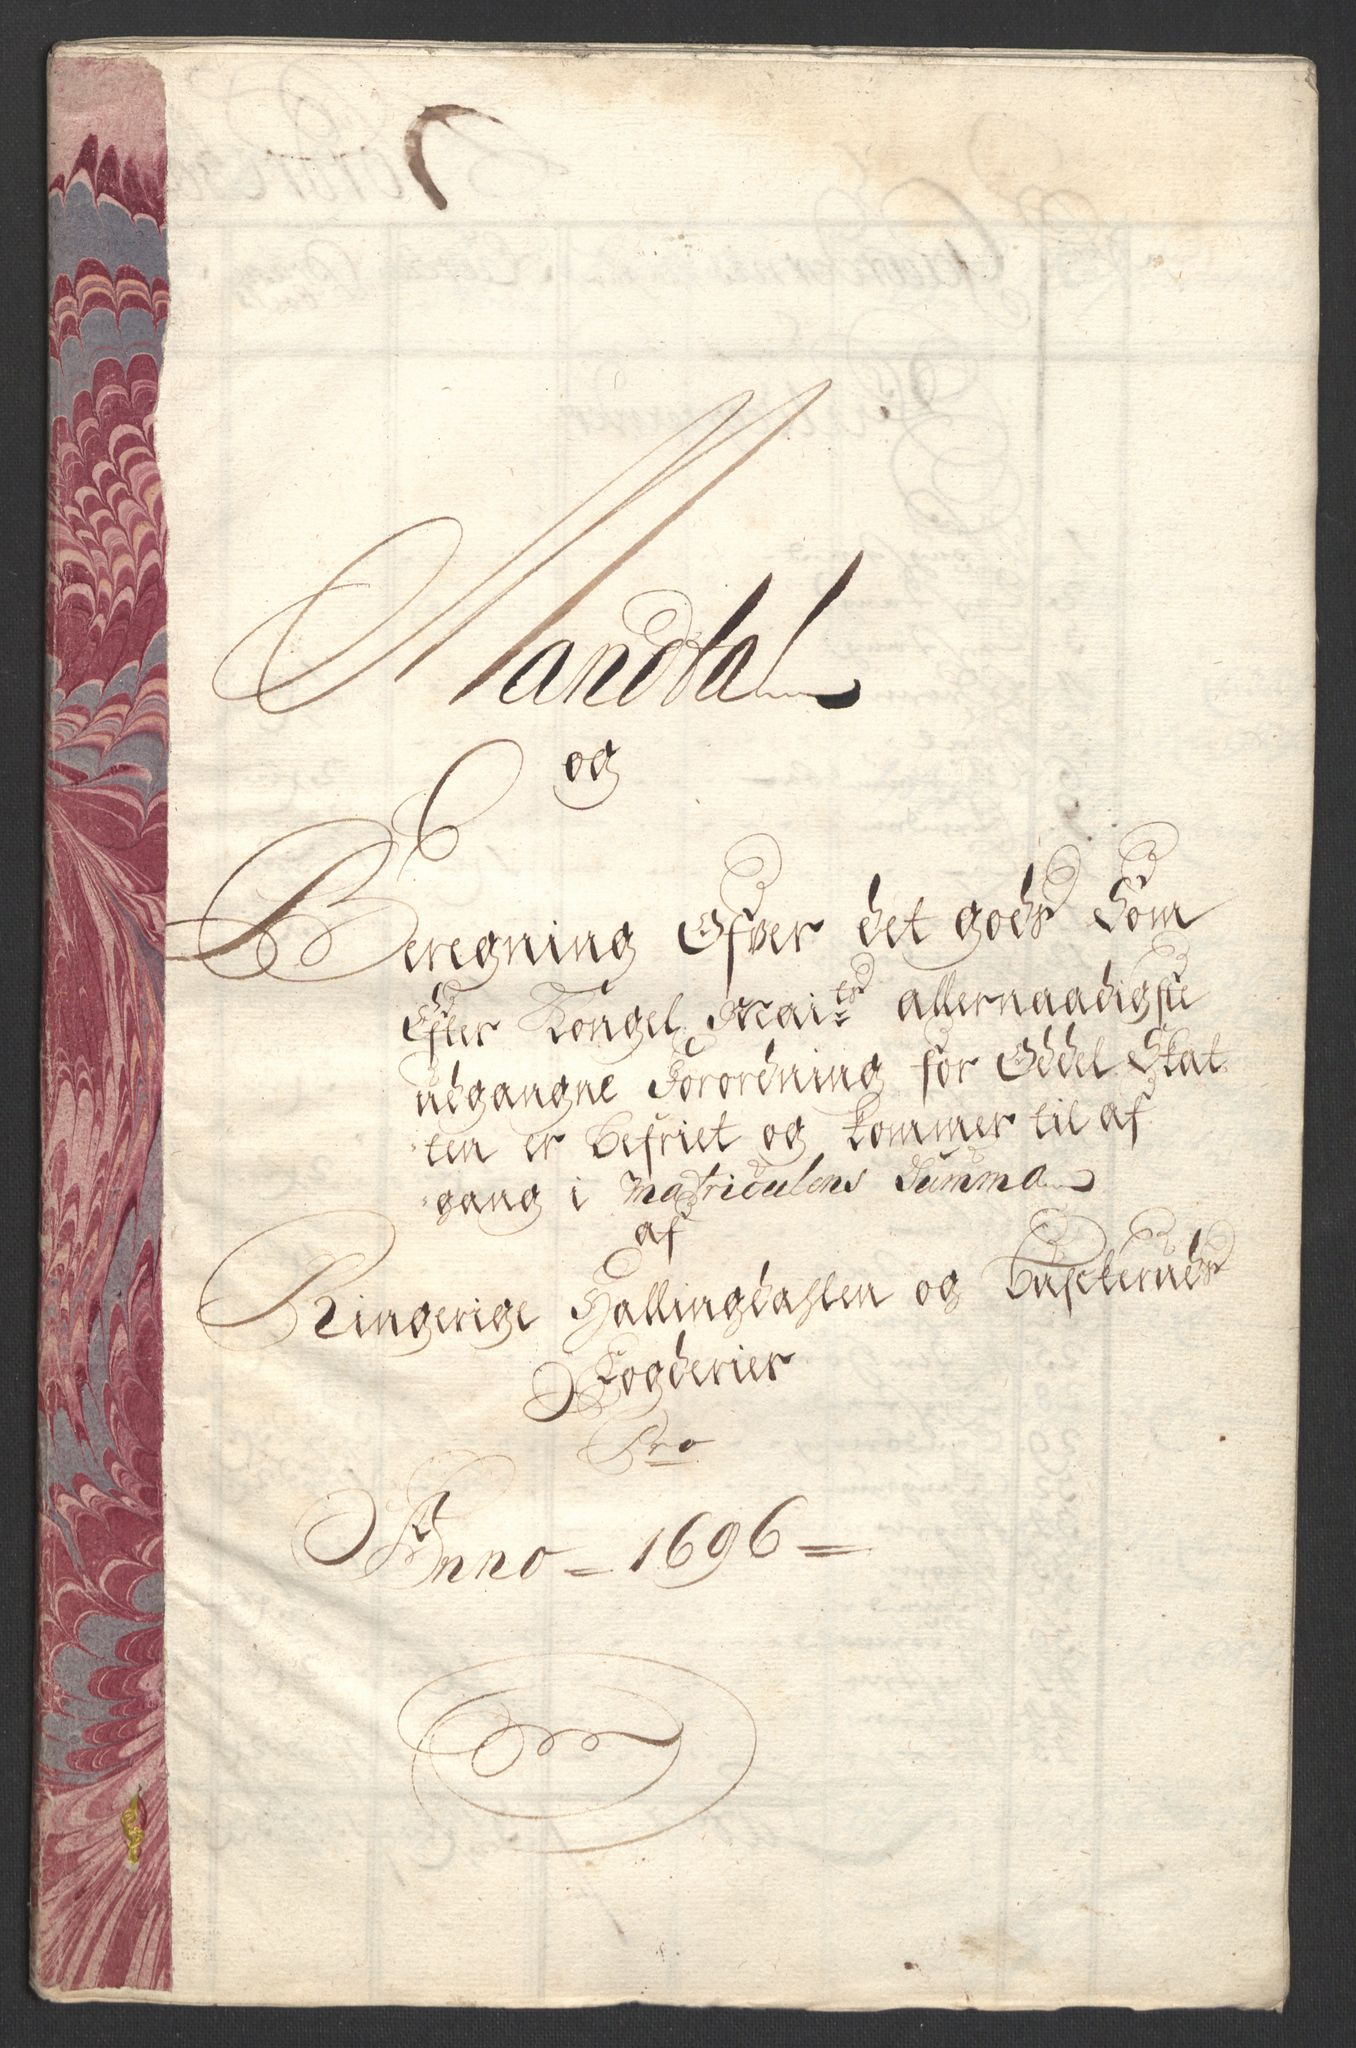 Mandtal
og
Beregning Ofver det gods Som
Efter Kongel. Mai:ts allernaadigste
udgangne Forordning for Oddel Skat
ten er befriet og kommer til af
gang i matriculens Summa
af
Ringerige Hallingdahlen og Buscheruds
Fogderier
Pro
Anno = 1696 =